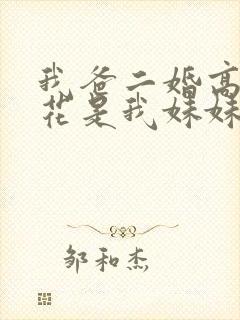 我爸二婚高
花是我妹妹
邹和杰